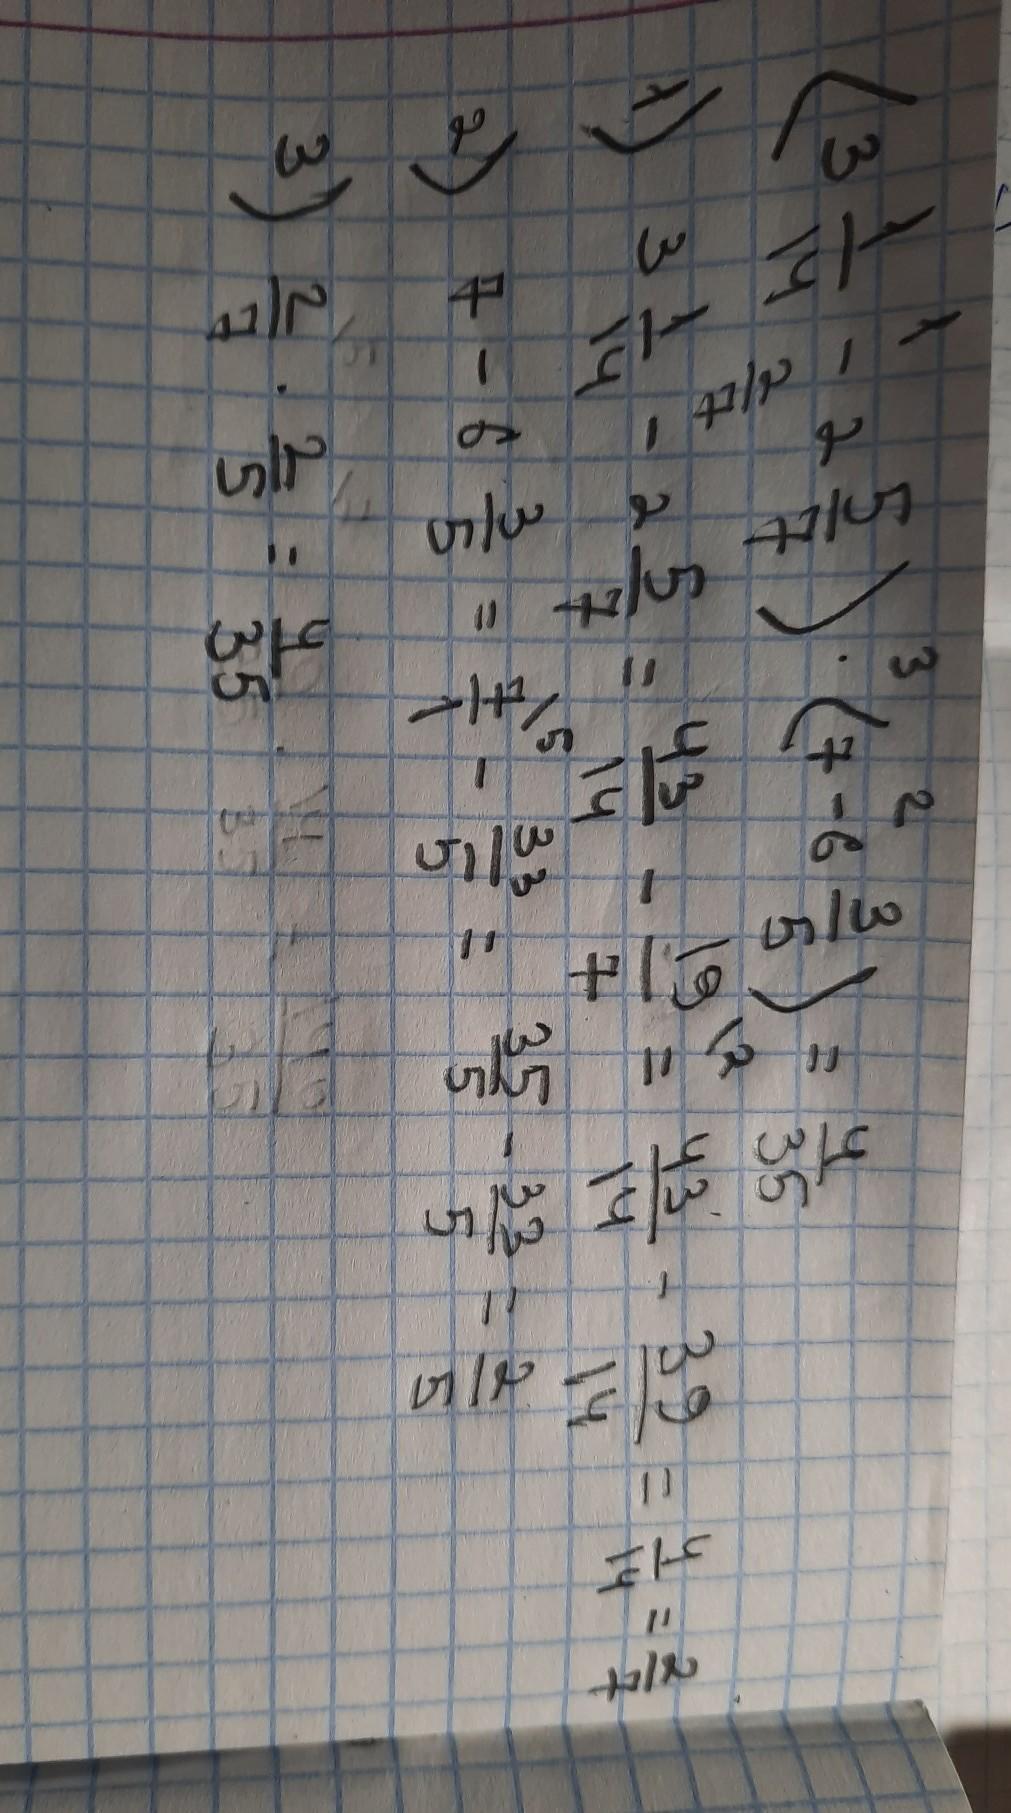 1 3 2
(3 1/14 - 2 5/7) · (7 - 6 3/5) = 4/35
2/7
1) 3 1/14 - 2 5/7 = 43/14 - 19/7 \2 = 43/14 - 39/14 = 4/14 = 2/7
2) 7 - 6 3/5 = 7/1 \5 - 33/5 = 35/5 - 33/5 = 2/5
3) 2/7 · 2/5 = 4/35 .